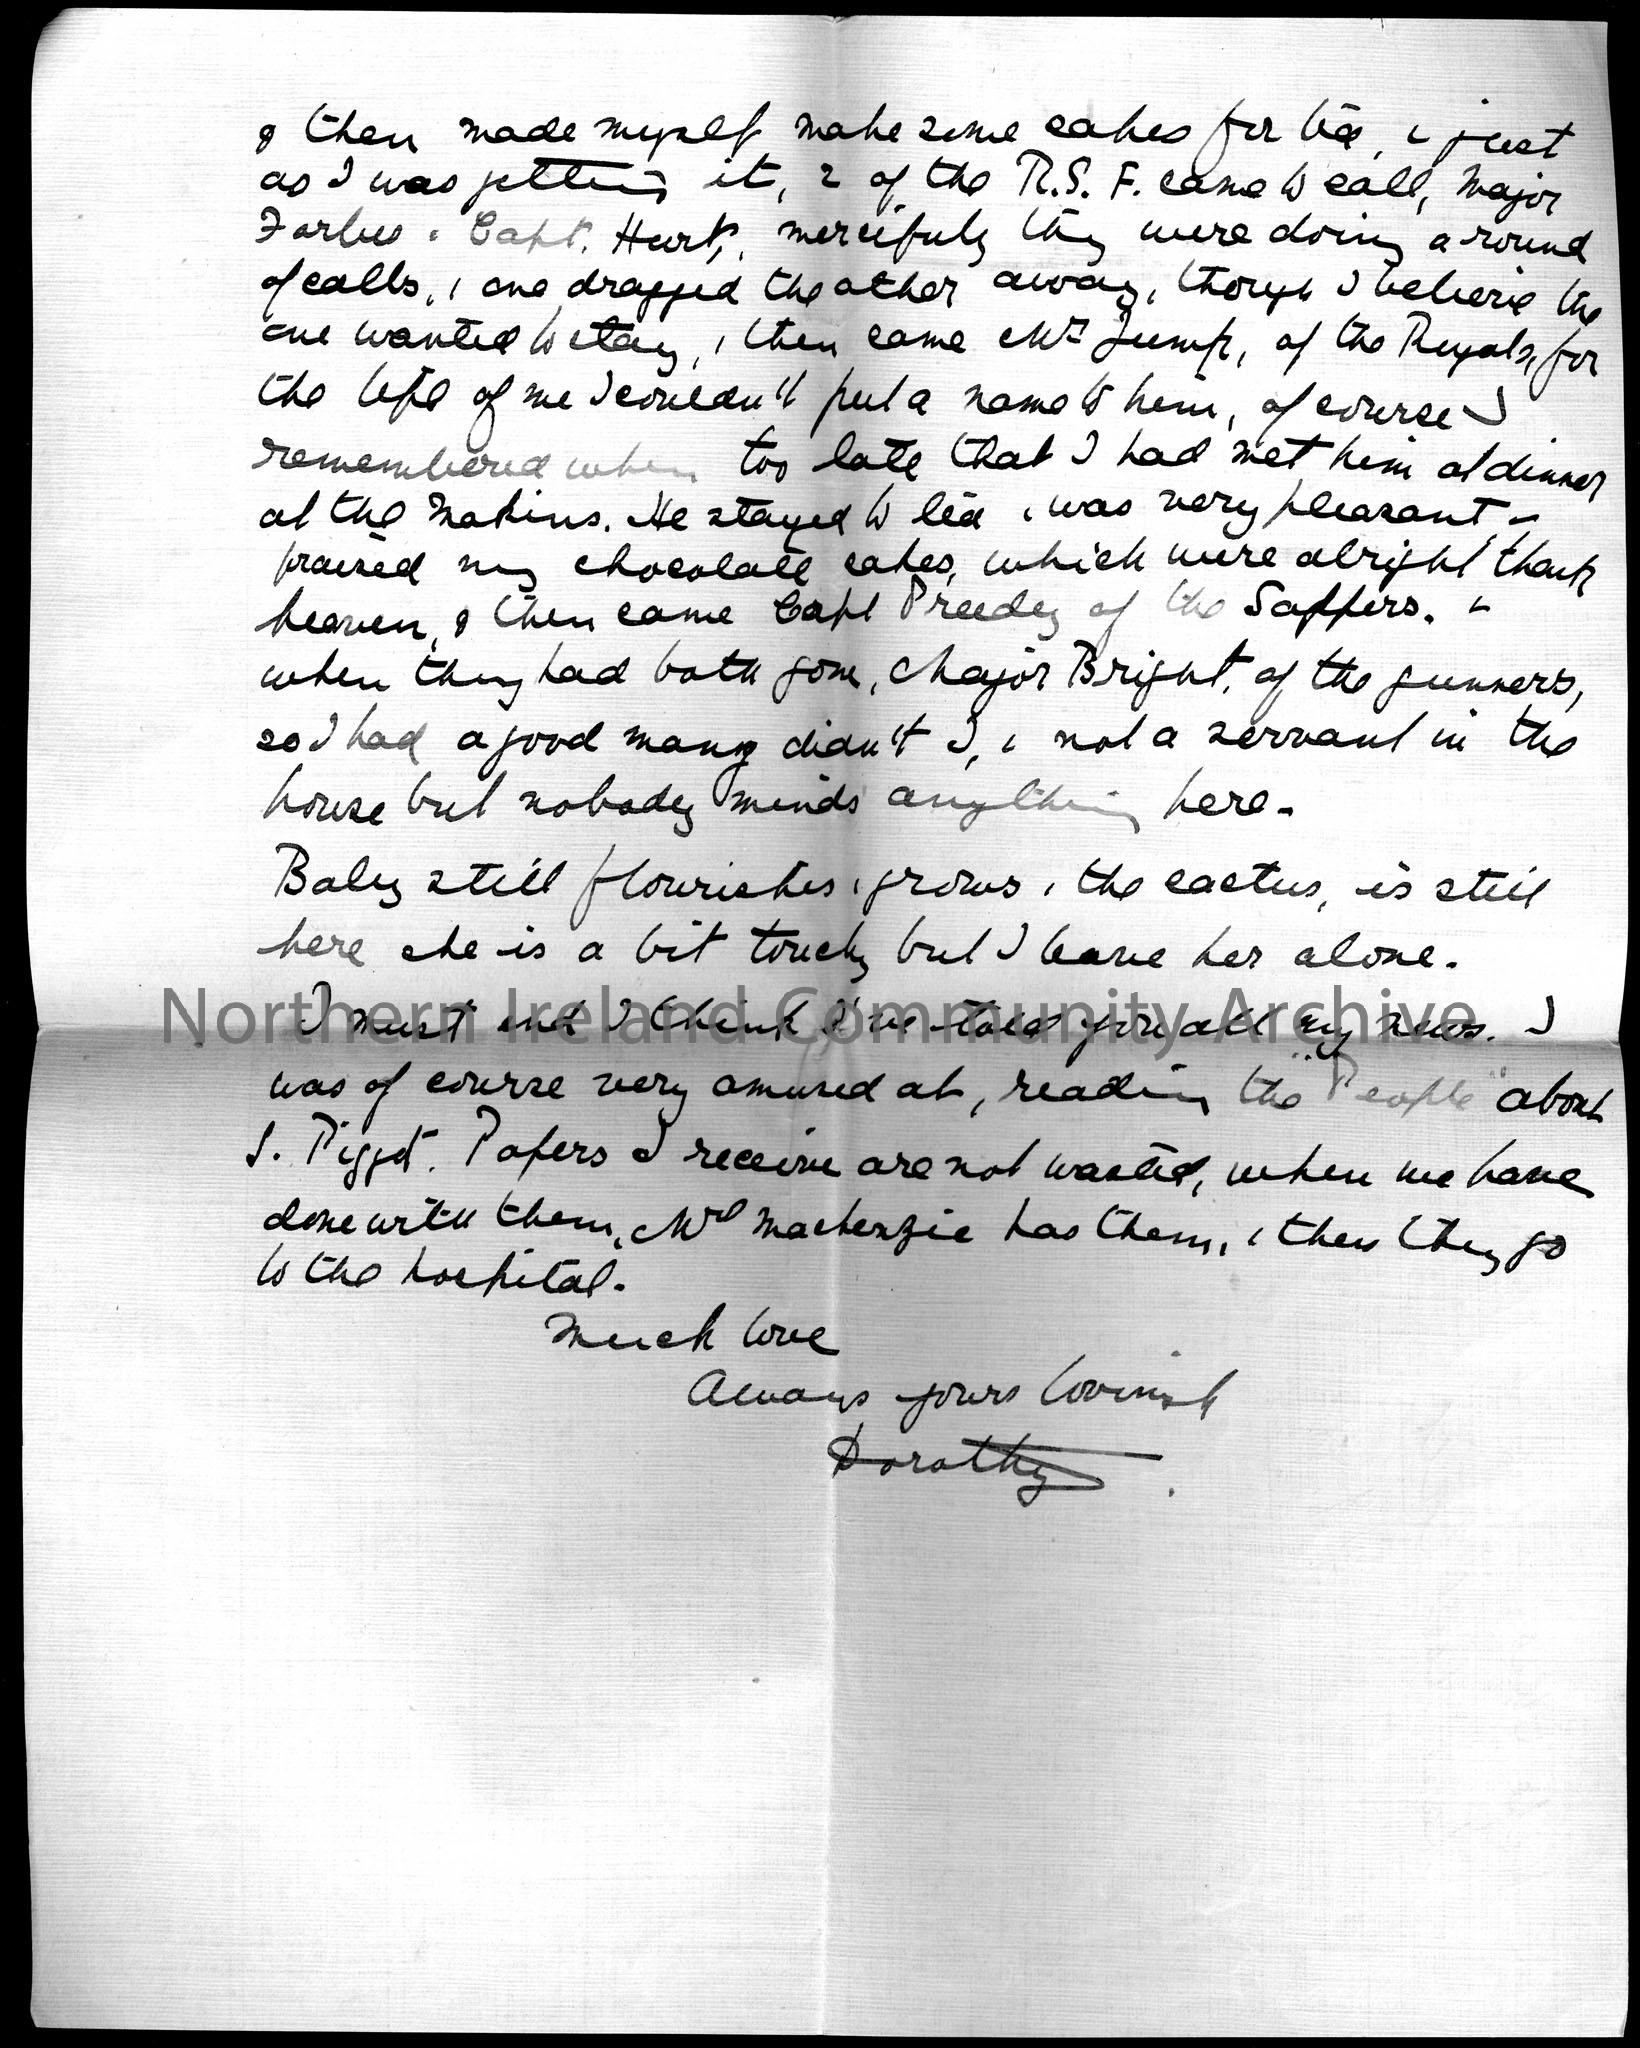 & then made myself make some cakes for tea, & just
as I was getting it, 2 of the R.S.F. came to call, Major
Forbes & Capt. Hurt, mercifuly they were doing a round
of calls, & one dragged the other away, though I believe the
one wanted to stay, & then came Mr Jump, of the Royals, for
the life of me I couldn't put a name to him, of course I
remembered when too late that I had met him at dinner
at the Makins. He stayed to tea & was very pleasant &
praised my chocolate cakes, which were alright thank
heaven, & then came Capt Preedy of the Sappers. &
when they had both gone, Major Bright, of the gunners,
so I had a good many didn't I, & not a servant in the
house but nobody minds anything here.
Baby still flourishes & grows, & the cactus, is still
here she is a bit touchy but I leave her alone.
Northern Ireland Community Archive
I must end I think I've told you all my news. I
was of course very amused at, reading the "People" about
S. Piggot. Papers I receive are not wasted, when we have
done with them, Mrs Mackenzie has them, & then they go
to the hospital.
Much love
Always yours lovingly
Dorothy.